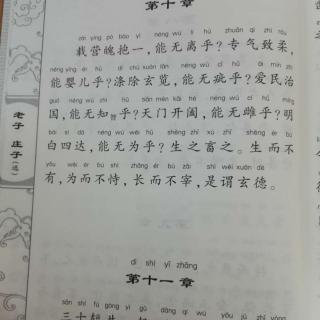 第十章
zài yíng pò bào yī néng wú lí hū zhuān qì zhì róu
载营魄抱一,能无离乎?专气致柔,
néng yīng ér hū dí chú xuán lǎn néng wú cī hū ài mín zhì
能婴儿乎?涤除玄览,能无疵乎?爱民治
guó néng wú zhī hū tiān mén kāi hé néng wú cí hū míng
国,能无知乎?天门开阖,能无雌乎?明
bái sì dá néng wú wéi hū shēng zhī xù zhī shēng ér bù
白四达,能无为乎?生之畜之。生而不
yǒu wéi ér bù shì zhǎng ér bù zǎi shì wèi xuán dé
有,为而不恃,长而不宰,是谓玄德。
dì shí yī zhāng
第十一章
sān shí fú gòng yì gǔ dāng qí wú yǒu jū zhī yòng
三十辐共
老子 庄子(选)